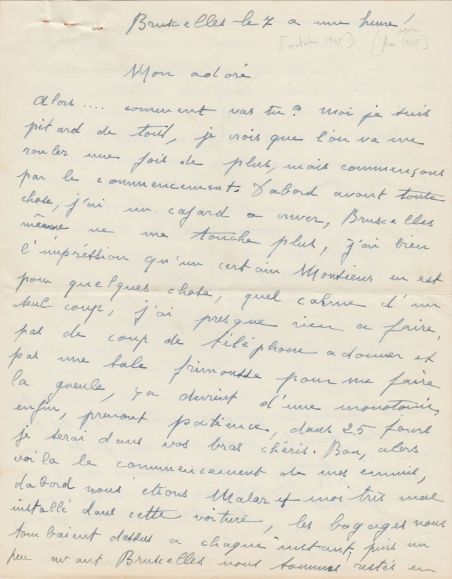 Bruxelles le 7 a une heure!
[octobre 1945] [fin 1945]
Mon adoré
Alors .... comment vas tu? moi je suis
pétard de tout, je crois que l'on va me
rouler une fois de plus, mais commençons
par le commencement, d'abord avant toute
chose, j'ai un cafard a crever, Bruxelles
même ne me touche plus, j'ai bien
l'impréssion qu'un certain Monsieur en est
pour quelques chose, quel calme d'un
seul coup, j'ai presque rien a faire,
pas de coup de téléphone a donner et
pas une sale frimousse pour me faire
la gueule, ça devient d'une monotonie,
enfin, prenont patience, dans 25 jours
je serai dans vos bras chéris. Bon, alors
voila le commencement de mes ennuis,
dabord nous étions Malar et moi très mal
installé dans cette voiture, les bagages nous
tombaient dessus a chaque instant, puis un
peu avant Bruxelles nous sommes restés en